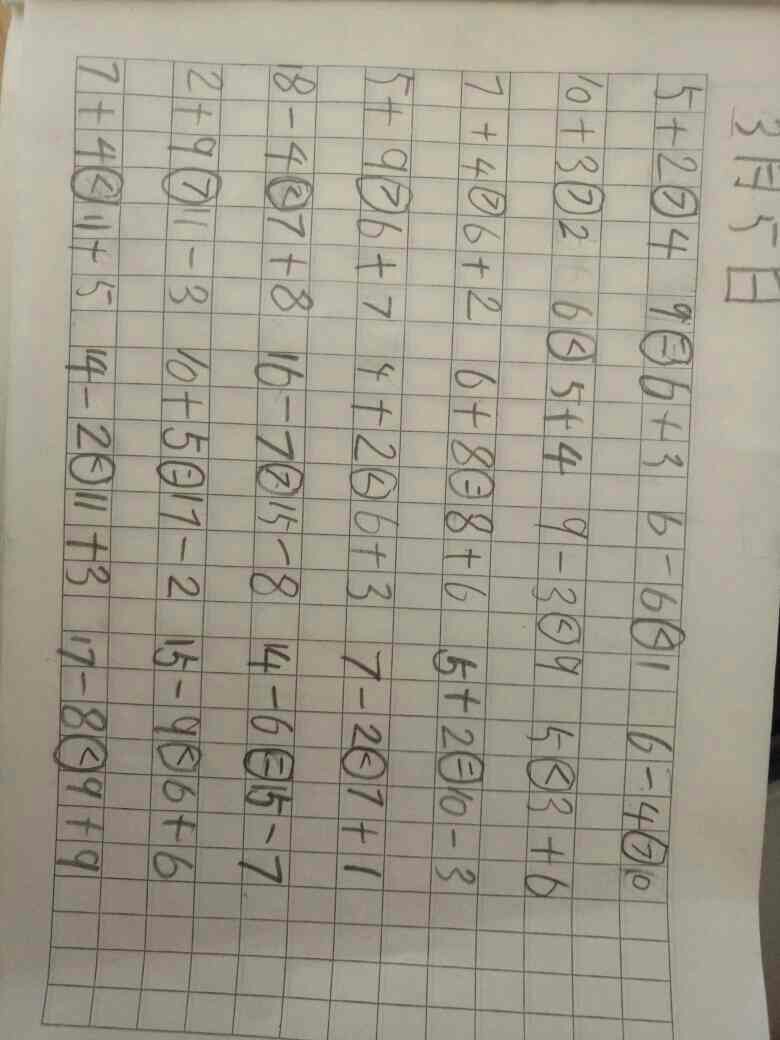 3月5日
5+2>4 9=6+3 6-6<1 6-4>10
10+3>2 6<5+4 9-3<9 5<3+6
7+4>6+2 6+8=8+6 5+2=10-3
5+9>6+7 4+2<6+3 7-2<7+1
18-4<7+8 16-7>15-8 14-6=15-7
2+9>11-3 10+5=17-2 15-9<6+6
7+4<11+5 14-2<11+3 17-8<9+9